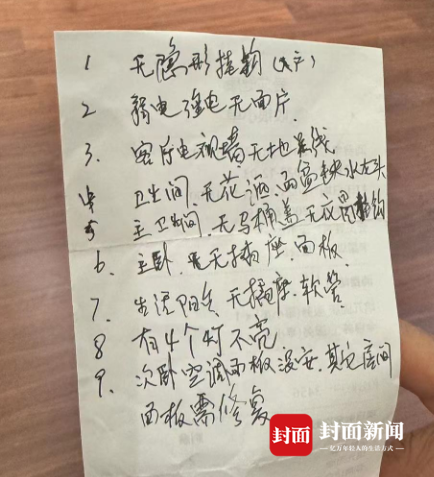 1 无隐形挂钩(入户)
2 弱电强电无面片.
3. 客厅电视墙无地脚线
4 卫生间.无花洒.面盆缺水龙头
5 主卫生间.无马桶盖无衣晃挂钩
6. 主卧.无插座.面板.
7. 生活阳台.无插座.软管
8 有4个灯不亮
9. 次卧空调面板没安.其它房间
面板需修复
封面 封面新闻
亿万年轻人的生活方式